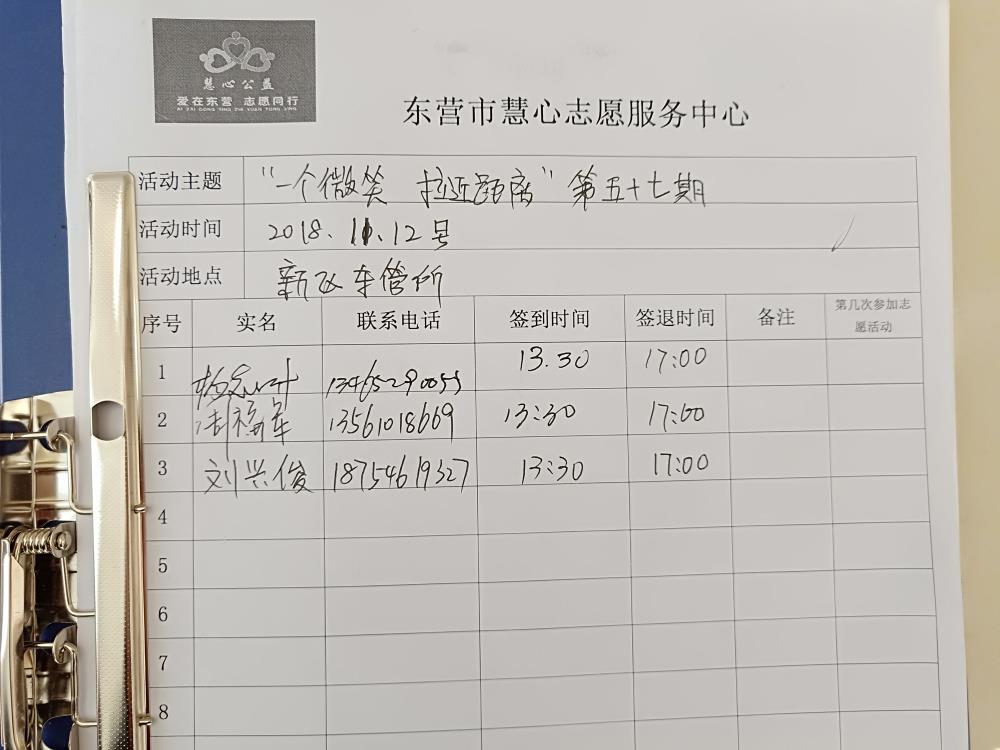 慧心公益
爱在东营 志愿同行
AI ZAI DONG YING ZHI YUAN TONG XING
东营市慧心志愿服务中心
活动主题 “一个微笑 拉近距离”第五十七期
活动时间 2018.11.12号
活动地点 新区车管所
序号 实名 联系电话 签到时间 签退时间 备注 第几次参加志
愿活动
1 13465290055 13.30 17:00
2 13561018669 13:30 17:00
3 刘兴俊 18754619327 13:30 17:00
4
5
6
7
8